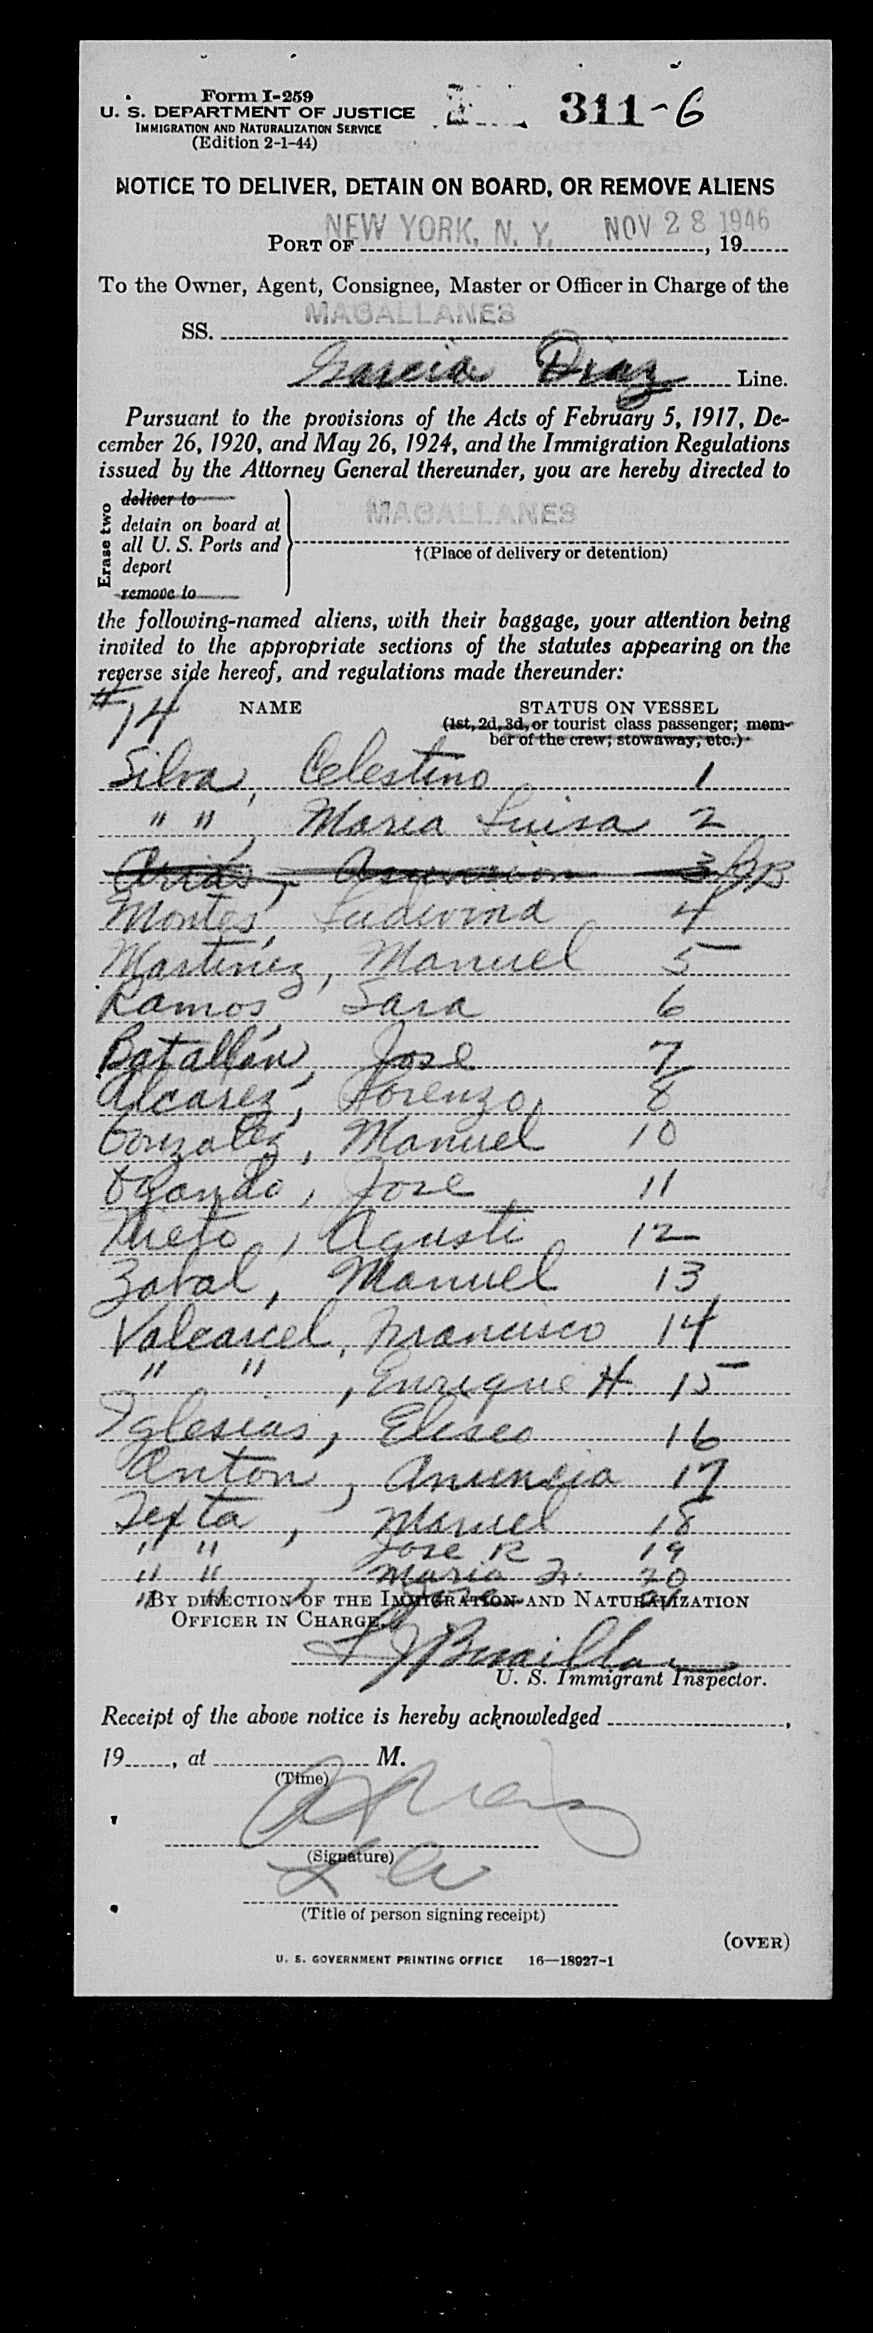 Form I-259
U. S. DEPARTMENT OF JUSTICE
IMMIGRATION AND NATURALIZATION SERVICE
(Edition 2-1-44)
311-6
NOTICE TO DELIVER, DETAIN ON BOARD, OR REMOVE ALIENS
NEW YORK, N. Y. NOV 28 1946
PORT OF , 19
To the Owner, Agent, Consignee, Master or Officer in Charge of the
SS. MAGALLANES
Garcia Diaz Line.
Pursuant to the provisions of the Acts of February 5, 1917, De-
cember 26, 1920, and May 26, 1924, and the Immigration Regulations
issued by the Attorney General thereunder, you are hereby directed to
Erase two
deliver to
detain on board at
all U. S. Ports and
deport
remove to
MAGALLANES
†(Place of delivery or detention)
the following-named aliens, with their baggage, your attention being
invited to the appropriate sections of the statutes appearing on the
reverse side hereof, and regulations made thereunder:
#14
NAME STATUS ON VESSEL
(1st, 2d, 3d, or tourist class passenger; mem-
ber of the crew; stowaway, etc.)
Silva, Celestino 1
" ", Maria Luisa 2
Arias, Asuncion 3
Montes, Ludivina 4
Martinez, Manuel 5
Ramos, Sara 6
Batallán, Jose 7
Alcarez, Lorenzo 8
Gonzalez, Manuel 10
Ogando, Jose 11
Nieto, Agusti 12
Zabal, Manuel 13
Valcarcel, Francisco 14
" ", Enrique H. 15
Iglesias, Eliseo 16
Anton, Anuncia 17
Texta, Manuel 18
" " Jose R 19
" " Maria 20
" " Jose
BY DIRECTION OF THE IMMIGRATION AND NATURALIZATION
OFFICER IN CHARGE.
U. S. Immigrant Inspector.
Receipt of the above notice is hereby acknowledged ,
19 , at M.
(Time)
(Signature)
(Title of person signing receipt)
(OVER)
U. S. GOVERNMENT PRINTING OFFICE 16—18927-1